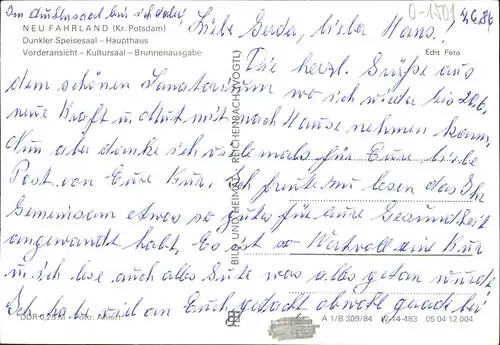 Im dunklen saal bin ich dabei,
0-1501
4.6.86
NEU FAHRLAND (Kr. Potsdam)
Dunkler Speisesaal – Haupthaus
Vorderansicht – Kultursaal – Brunnenausgabe
Echt Foto
Liebe Gerda, lieber Hans!
Die herzl. Grüße aus
dem schönen Sanatorium wo ich wieder bis 20.6.
neue Kraft u. Mut mit nach Hause nehmen kann,
Nun aber danke ich vielemals für Eure liebe
Post von Eure Kur. Ich freute zu lesen das Ihr
Gemeinsam etwas so gutes für eure Gesundheit
angewandt habt. Es ist so Wertvoll eine Kur
u. ich lese auch alles Gute was alles getan wurde
Ich hab viel an Euch gedacht obwohl gerade bei
BILD UND HEIMAT REICHENBACH (VOGTL)
DDR 0,25 M
A 1/B 309/84 IV-14-483 05 04 12 004